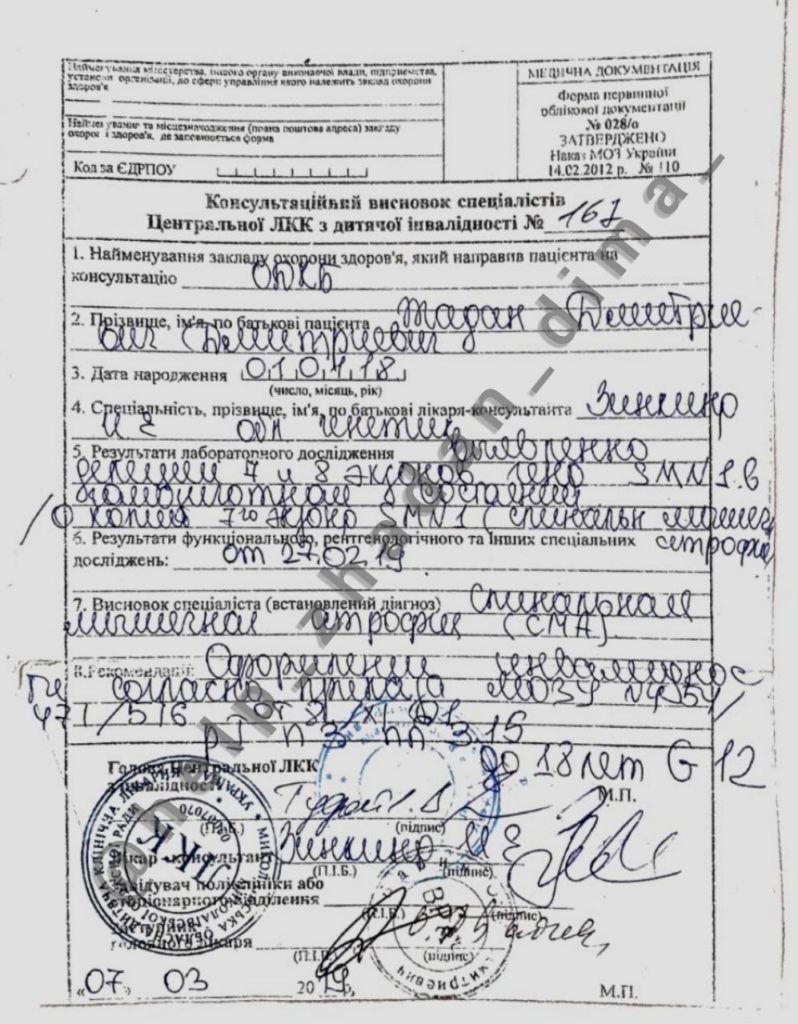 Найменування міністерства, іншого органу виконавчої влади, підприємства,
установи організації, до сфери управління якого належить заклад охорони
здоров'я
Найменування та місцезнаходження (повна поштова адреса) закладу
охорони здоров'я, де заповнюється форма
Код за ЄДРПОУ
МЕДИЧНА ДОКУМЕНТАЦІЯ
Форма первинної
облікової документації
№ 028/о
ЗАТВЕРДЖЕНО
Наказ МОЗ України
14.02.2012 р. № 110
Консультаційний висновок спеціалістів
Центральної ЛКК з дитячої інвалідності № 167
1. Найменування закладу охорони здоров'я, який направив пацієнта на
консультацію ОДКБ
2. Прізвище, ім'я, по батькові пацієнта Жадан Дмитрие-
вич Дмитриевич
3. Дата народження 01.04.18
(число, місяць, рік)
4. Спеціальність, прізвище, ім'я, по батькові лікаря-консультанта Зинкина
И Е
5. Результати лабораторного дослідження выявленно
делеции 7 и 8 экзонов гена SMN1 в
состоянии
/0 копия 7го экзона SMN1 (спинальн мышеч
6. Результати функціонального, рентгенологічного та інших спеціальних атрофия
досліджень: от 27.02.19
7. Висновок спеціаліста (встановлений діагноз) Спинальная
мышечная атрофия (СМА).
8.Рекомендації: Оформление инвалиднос
ти согласно приказа МОЗУ
471/516 от
п 3 пп 3.15
до 18 лет G 12
Голова Центральної ЛКК
з інвалідності
М.П.
(П.І.Б.) (підпис)
Лікар-консультант Зинкина И Е
(П.І.Б.) (підпис)
Завідувач поліклініки або
стаціонарного відділення
(П.І.Б.) (підпис)
Заступник
головного лікаря
(П.І.Б.) (підпис)
«07 03 2019р.
М.П.
ЛКК
zhadan_dima_